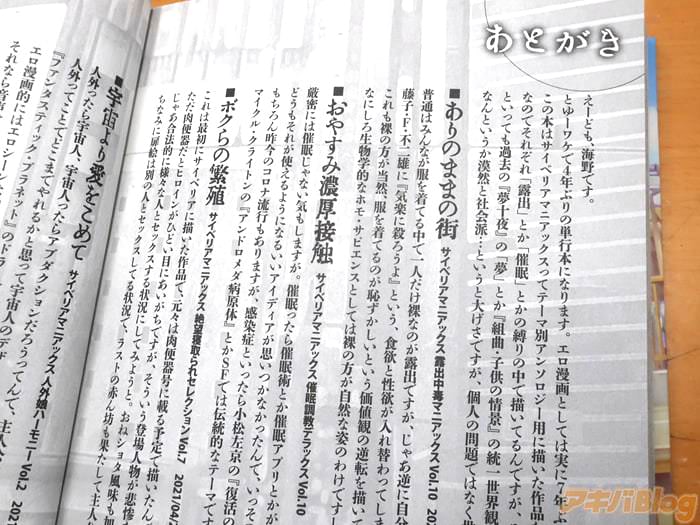 あとがき
えーども、海野です。
とゆーワケで4年ぶりの単行本になります。エロ漫画としては実に
この本はサイベリアマニアックスってテーマ別アンソロジー用に描いた作品
なのでそれぞれ『露出』とか『催眠』とかの縛りの中で描いてるんですが、
といっても過去の『夢十夜』の『夢』とか『組曲・子供の情景』の統一世界観
なんというか漠然と社会派…というと大げさですが、個人の問題ではなく世
■ありのままの街 サイベリアマニアックス 露出中毒マニアックス Vol.10 20
普通はみんなが服を着てる中で一人だけ裸なのが露出ですが、じゃあ逆に自分
藤子・F・不二雄に『気楽に殺ろうよ』という、食欲と性欲が入れ替わってしま
これも裸の方が当然、服を着てるのが恥ずかしいという価値観の逆転を描いて
なにしろ生物学的なホモ・サピエンスとしては裸の方が自然な姿のわけですし
■おやすみ濃厚接触 サイベリアマニアックス 催眠調教マニアックス Vol.10
厳密には催眠じゃない気もしますが。催眠ったら催眠術とか催眠アプリとかが
どうもそれが使えるようになるいいアイディアが思いつかなかったんで、いっそ
もちろん昨今のコロナ流行もありますが、感染症といったら小松左京の『復活の
マイクル・クライトンの『アンドロメダ病原体』とかSFでは伝統的なテーマです
■ボクらの繁殖 サイベリアマニアックス 絶望寝取られセレクション Vol.7 2021/04/
これは最初にサイベリアに描いた作品で、元々は肉便器号に載る予定で描いたん
ただ肉便器だとヒロインがひどい目にあいがちですが、そういう登場人物が悲惨
じゃあ合法的に様々な人とセックスする状況にしてみようと。おねショタ風味も加
ちなみに扉絵は別の人とセックスしてる状況で、ラストの赤ん坊も果たして主人
■宇宙より愛をこめて サイベリアマニアックス 人外娘ハーモニー Vol.2 202
人外ったら宇宙人、宇宙人ったらアブダクションだろうってんで、主人公
人外ってことでどこまでやれるかと思って宇宙人のデザ
『ファンタスティック・プラネット』のドラ
エロ漫画的にはエロシーンな
それなら音声
アキバBlog